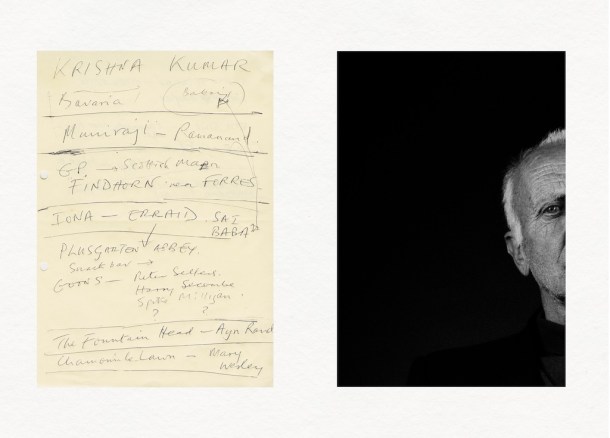 KRISHNA KUMAR
Bavaria (Baba)
Muniraji - Ramanand.
G.P. → Scottish Man
FINDHORN near FORRES
IONA - ERRAID. SAI
BABA
PLUSGARTEN ABBEY.
Snack bar →
GOONS - Peter Sellers.
Harry Secombe
Spike Milligan.
? ?
The Fountain Head - Ayn Rand
Chamomile Lawn - Mary
Wesley